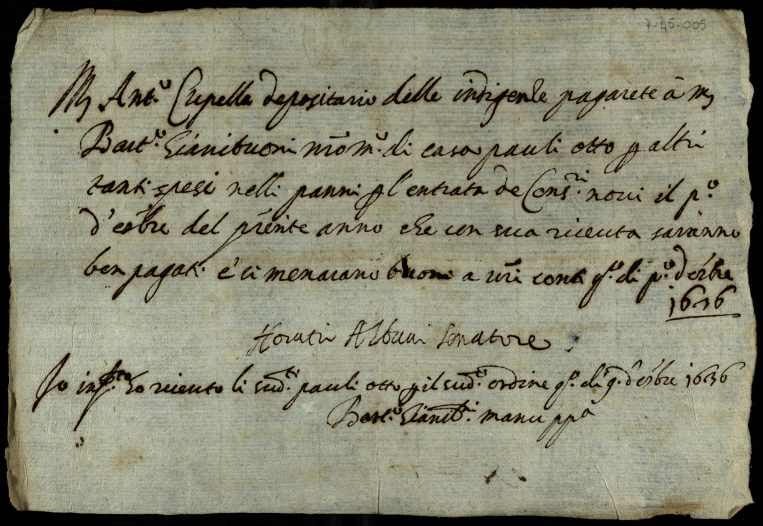 7-45-005
M Ant.º Cupella depositario delle indigenze pagarete à m
Bart.º Gianibuoni nr̃o m.º di casa pauli otto p altri
tanti spesi nelli panni p l'entrata de Cons.ri novi il p.º
d'ott̃bre del pr̃ente anno che con sua riceuta saranno
ben pagati e si menarano buoni a vr̃i conti q.º di p.º d'ott̃bre
1636
Horatio Albani Senatore
Io inf.to ho riceuto li sud.ti pauli otto p il sud.º ordine q.º di 9. d'ott̃bre 1636
Bart.º Gianib.i manu pp.a